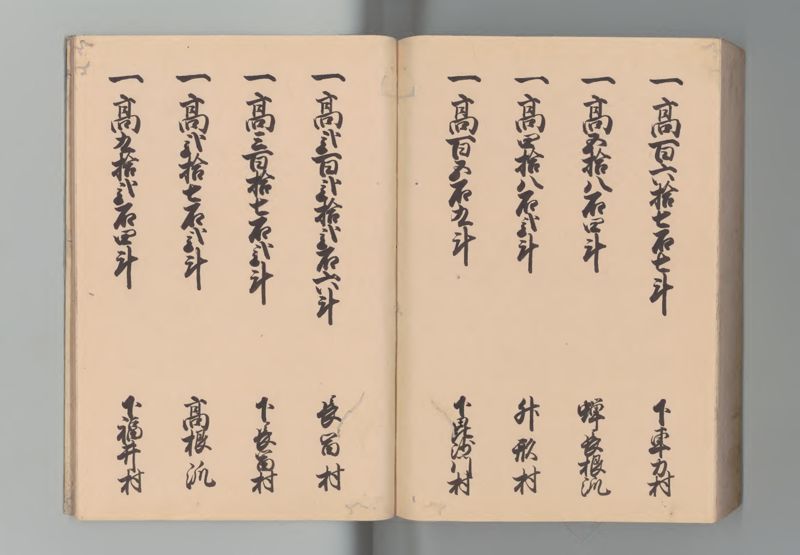 一高百六拾七石七斗 下車力村
一高五拾八石四斗 蝉長根派
一高四拾八石弐斗 舛形村
一高百五石九斗 下村
一高弐百弐拾弐石六斗 長冨村
一高三百拾七石弐斗 下長冨村
一高弐拾七石弐斗 高根派
一高九拾弐石四斗 下福井村